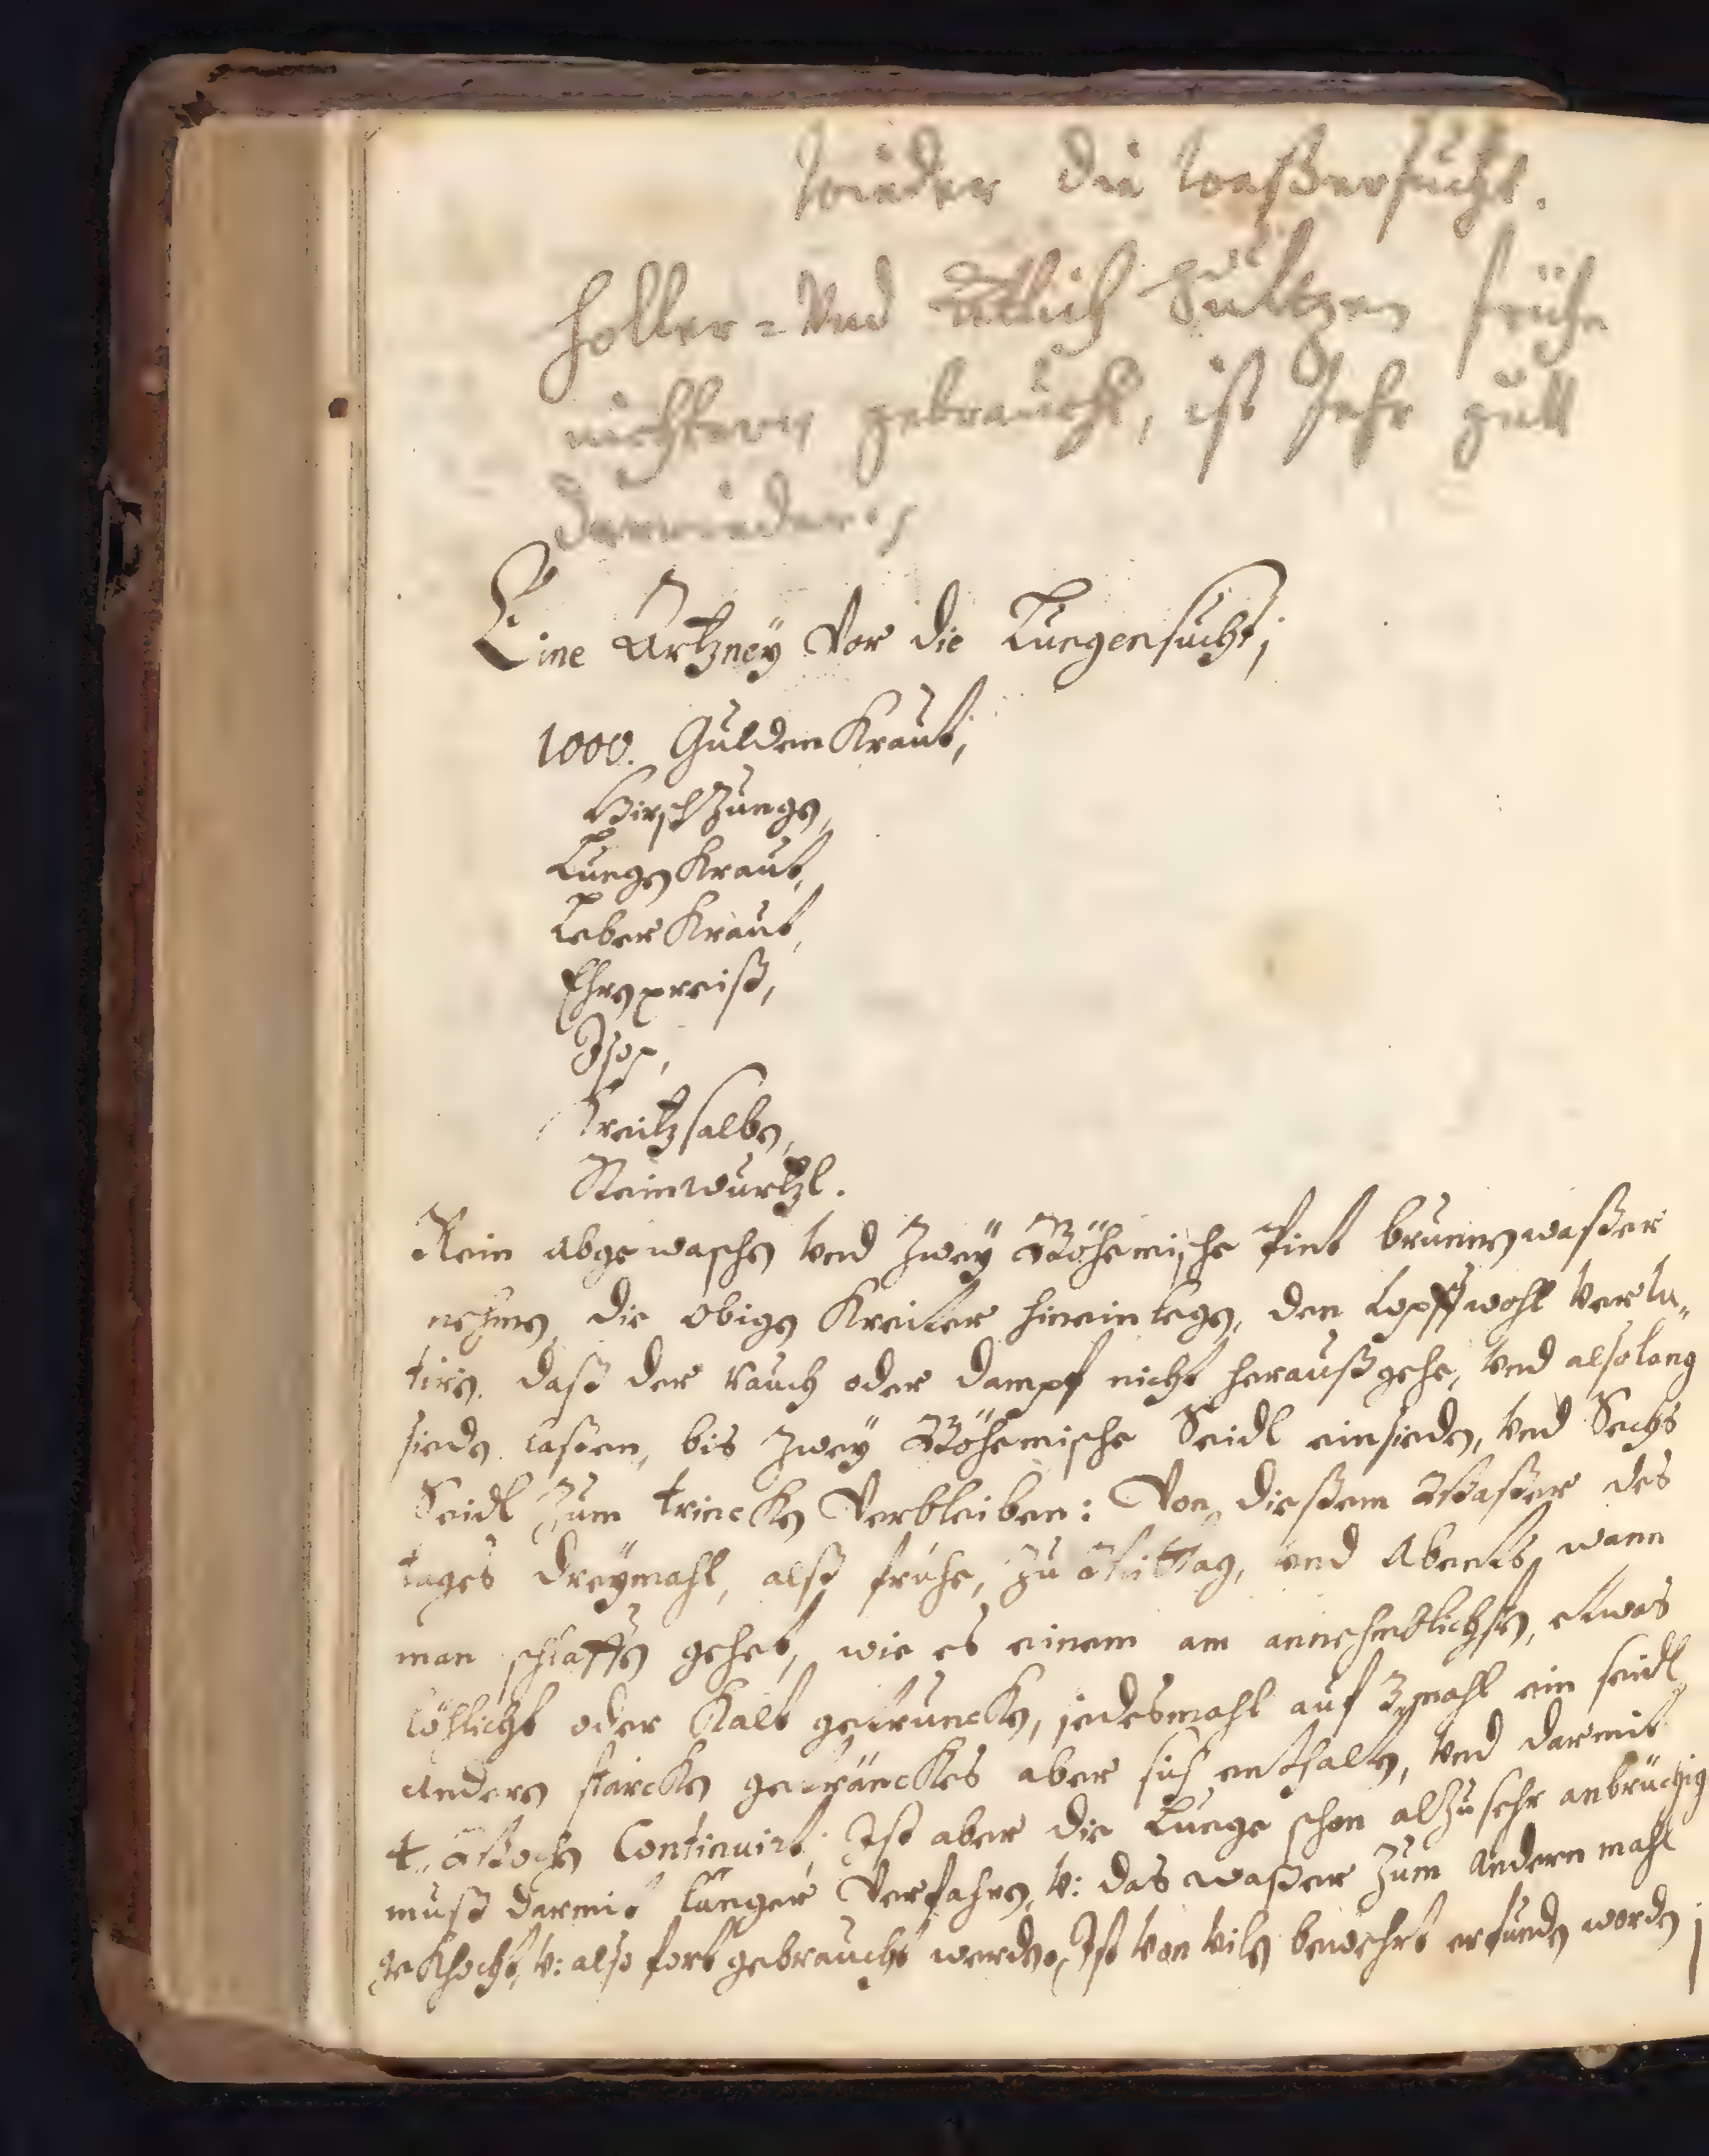 wieder die waßersucht.
Holler= Vnd Attich Sultzen frühe
nichtern gebraucht, ist sehr gutt
darwieder.
Eine Artzney Vor die Lungensucht;
1000. Gulden Kraut,
Hirsch Zungen,
Lungen Kraut,
Leber Kraut,
Ehrenpreiß,
Isop,
Kreitz salben,
Steinwurtzl.
Rein abgewaschen vnd Zwey Böhemische Pint brunnenwaßer
nehmen, die obigen Kreiter hinein legen, den topff wohl verlu„
tiren, daß der rauch oder dampf nicht heraußgehe, vnd also lang
sieden laßen, bis Zwey Böhemische Seidl einsieden, vnd Sechs
Seidl Zum trincken Verbleiben: Von dießem Waßer des
tages dreymahl, alß frühe, Zu Mittag, vnd Abents, wann
man schlaffen gehet, wie es einem am annehmblichsten, etwas
löhlicht oder Kalt getruncken, jedesmahl auf 3mahl ein seidl,
anders starcken geträncKes aber sich enthalten, vnd darmit
4„ Wochen Continuirt; Ist aber die Lunge schon alzusehr anbrüchig
muß darmit länger Verfahren, v: das waßer Zum andern mahl
gekhocht, v: also fort gebraucht werden. Ist von vilen bewehrt erfunden worden